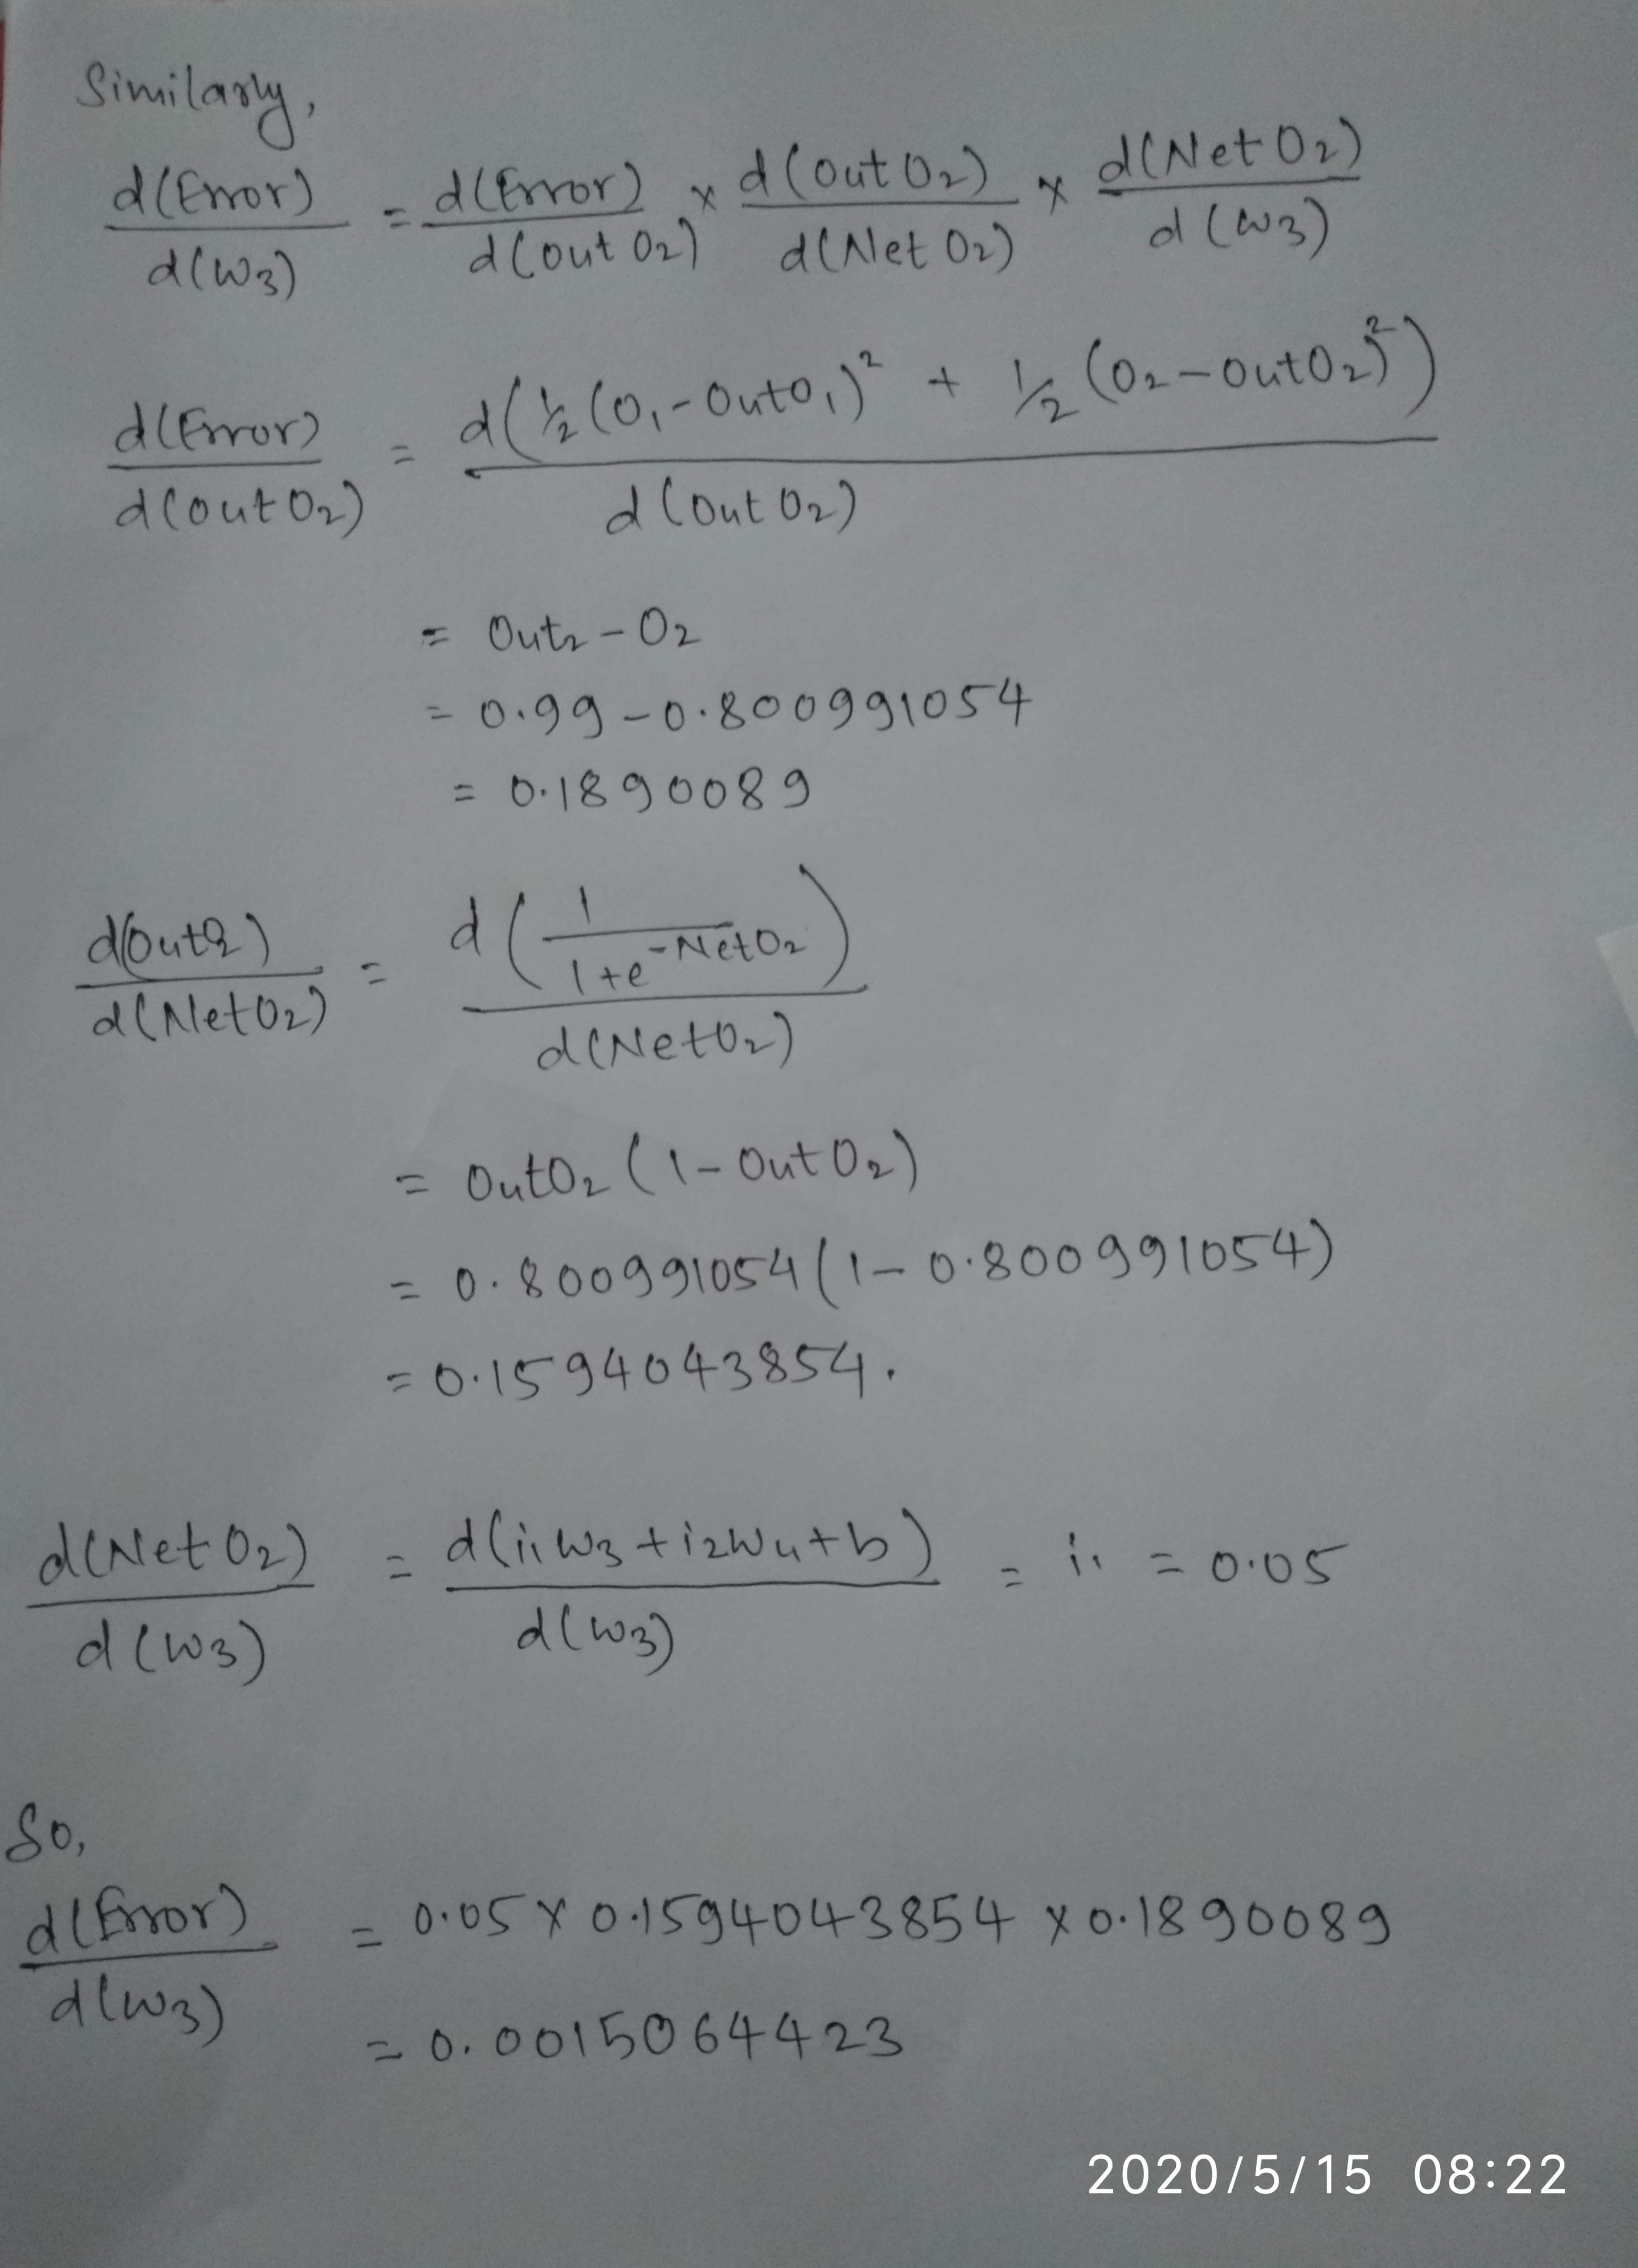 Similarly,
d(Error)/d(w3) = d(Error)/d(out O2) x d(out O2)/d(Net O2) x d(Net O2)/d(w3)
d(Error)/d(out O2) = d(½(O1-OutO1)² + ½(O2-OutO2)²)/d(Out O2)
= Out2 - O2
= 0.99 - 0.800991054
= 0.1890089
d(Out2)/d(NetO2) = d(1/(1+e^-NetO2))/d(NetO2)
= OutO2 (1 - Out O2)
= 0.800991054 (1 - 0.800991054)
= 0.1594043854.
d(Net O2)/d(w3) = d(i1w3 + i2w4 + b)/d(w3) = i1 = 0.05
So,
d(Error)/d(w3) = 0.05 x 0.1594043854 x 0.1890089
= 0.0015064423
2020/5/15 08:22